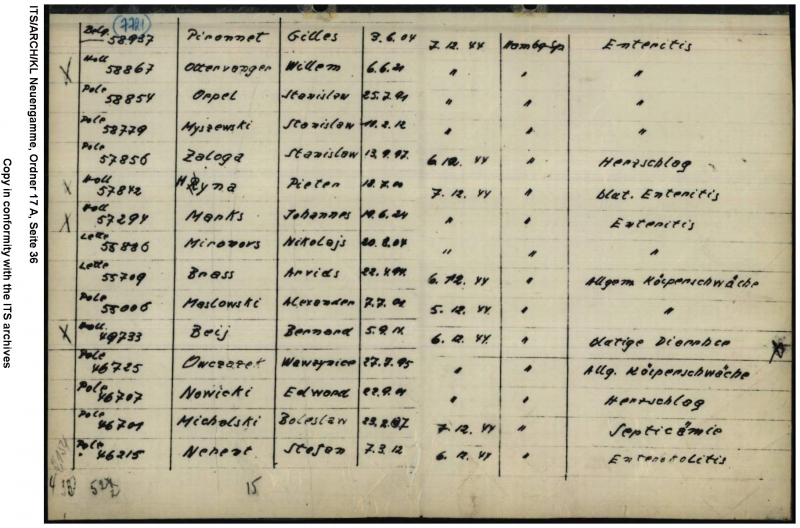 ITS/ARCH/KL Neuengamme, Ordner 17 A, Seite 36
Copy in conformity with the ITS archives
7721
Belg. 58937 Pironnet Gilles 3.6.04 7.12.44 Hambg-Sp Enteritis
X Holl 58867 Ottervanger Willem 6.6.21 " " "
Pole 58854 Orpel Stanislaw 25.7.21 " " "
Pole 58779 Myszewski Stanislaw 2.12 " " "
Pole 57856 Zaloga Stanislaw 13.9.97. 6.12.44 " Herzschlag
X Holl 57842 Ryna Pieter 18.7. 7.12.44 " blut. Enteritis
X Holl 57294 Manks Johannes 6.24 " " Enteritis
Lette 56886 Mironovs Nikolajs 20.8.04 " " "
Lette 55709 Brass Arvids 22.4. 6.12.44 " Allgem Körperschwäche
Pole 55006 Maslowski Alexander 7.7. 5.12.44 " "
X Holl. 49733 Beij Bernard 5.9.11 6.12.44 " blutige Diarrhoe X
Pole 46725 Owczarek Wawrzynice 27.7.95 " " Allg. Körperschwäche
Pole 46707 Nowicki Edward 22.9. " " Herzschlag
Pole 46701 Michalski Boleslaw 23.2.87 7.12.44 " Septicämie
Pole 46215 Nehent Stefan 7.3.12 6.12.44 " Enterokolitis
15